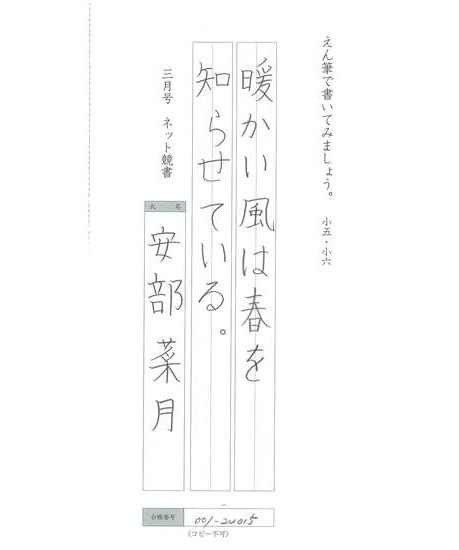 えん筆で書いてみましょう。 小五・小六
暖かい風は春を
知らせている。
三月号 ネット競書
氏名
安部菜月
台帳番号 001-24015
(コピー不可)